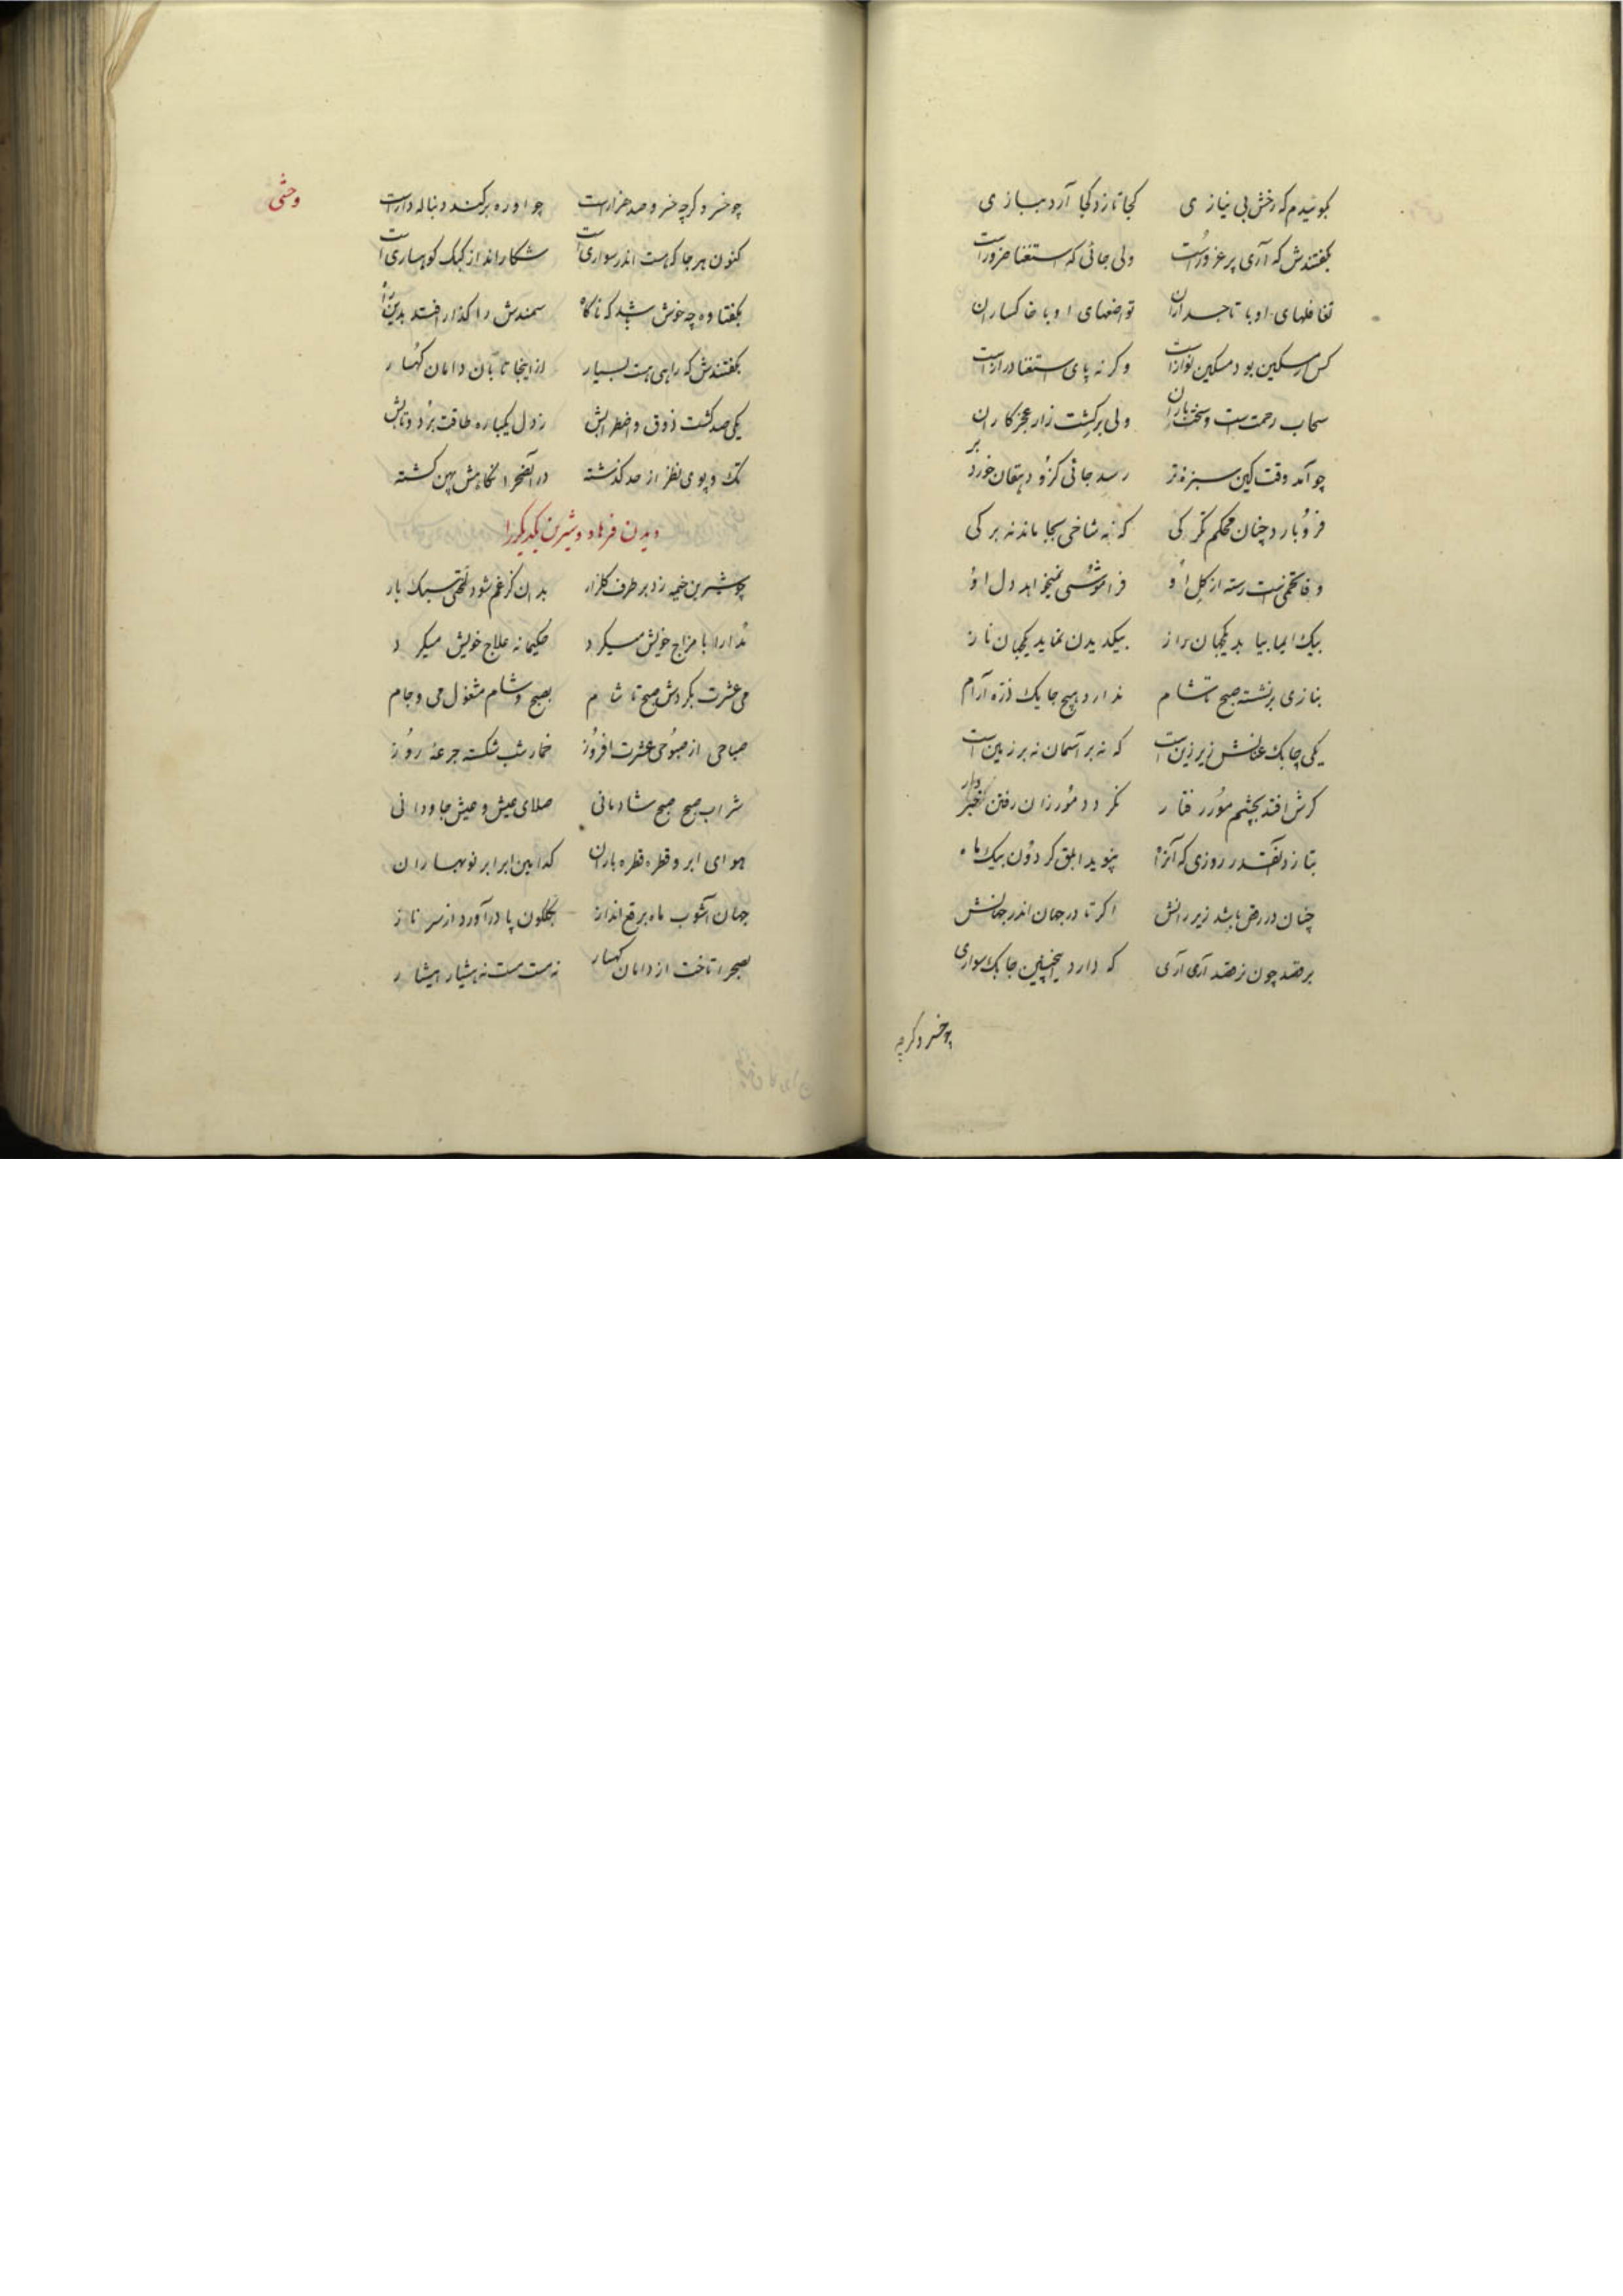 بگوئیدم که رخش بی نیازی کجا تازد کجا آرد ببازی
بگفتندش که آری پر غرور است ولی جائی که استغنا ضرور است
تغافلهای او با تاجداران تواضعهای او با خاکساران
کس ار مسکین بود مسکین نواز است وگر نه پای استغنا دراز است
سحاب رحمت است و سخت باران ولی بر کشت زار عجز کاران
چو آمد وقت کین سبزه تر رسد جائی کزو دهقان خورد بر
فرو بارد چنان محکم تگرگی که نه شاخی بجا ماند نه برگی
وفا تخمی است رسته از گل او فراموشی نمیخواهد دل او
بیک ایما بیابد یکجهان راز بیک دیدن نماید یکجهان ناز
بنازی برنشسته صبح تا شام ندارد هیچ جا یک ذره آرام
یکی چابک عنانش زیر زین است که نه بر آسمان نه بر زمین است
گرش افتد بچشم مور رفتار نگردد مور زان رفتن خبردار
بتازد آنقدر روزی که آنرا نپوید ابلق گردون بیک ماه
چنان در رقص باشد زیر رانش اگر تا در جهان اندر جهانش
برقصد چون نرقصد آری آری که دارد اینچنین چابک سواری
چو خسرو گرچه
وحشی
چو خسرو گرچه خسرو صد هزار است چو او در ره بر کنند دنباله دار است
کنون هر جا که هست اندر سواری است شکار انداز کبک کوهساری است
بگفتا وه چه خوش باشد که ناگاه سمندش را گذار افتد بدین راه
بگفتندش که راهی هست بسیار از اینجا تا بآن دامان کهسار
یکی صد گشت ذوق و اضطرابش ز دل یکباره طاقت برد و تابش
تک و پوی نظر از حد گذشته در آن صحرا نگاهش پهن گشته
دیدن فرهاد و شیرین یکدیگر را
چو شیرین خیمه زد بر طرف گلزار بدان کز غم شود لختی سبک بار
مدارا با مزاج خویش میکرد حکیمانه علاج خویش میکرد
می عشرت بگردش صبح تا شام بصبح و شام مشغول می و جام
صباحی از صبوحی عشرت افروز خمار شب شکسته جرعه روز
شراب صبح صبح شادمانی صلای عیش و عیش جاودانی
هوای ابر و قطره قطره باران کدامین ابر ابر نوبهاران
جهان آشوب ماه برقع انداز بگلگون پا درآورد از سر ناز
بصحرا تاخت از دامان کهسار نه مست مست نه هشیار هشیار